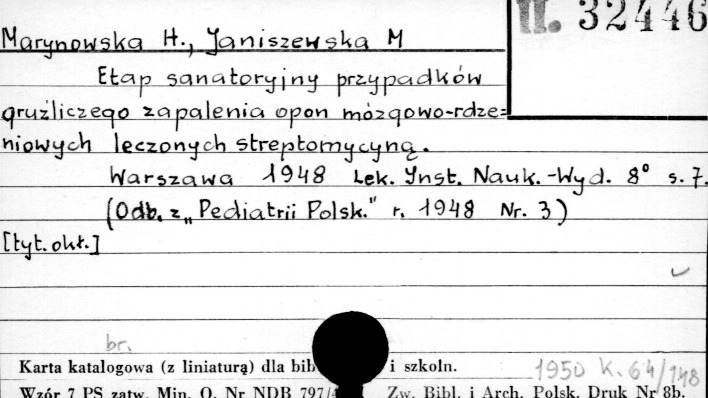 II. 32446
Marynowska H., Janiszewska M
Etap sanatoryjny przypadków
gruźliczego zapalenia opon mózgowo-rdze=
niowych leczonych streptomycyną.
Warszawa 1948 Lek. Inst. Nauk.-Wyd. 8° s. 7.
(Odb. z „Pediatrii Polsk." r. 1948 Nr. 3)
[tyt. okł.]
br.
Karta katalogowa (z liniaturą) dla bib i szkoln. 1950 K. 64/148
Wzór 7 PS zatw. Min. O. Nr NDB 797/4 Zw. Bibl. i Arch. Polsk. Druk Nr 8b.